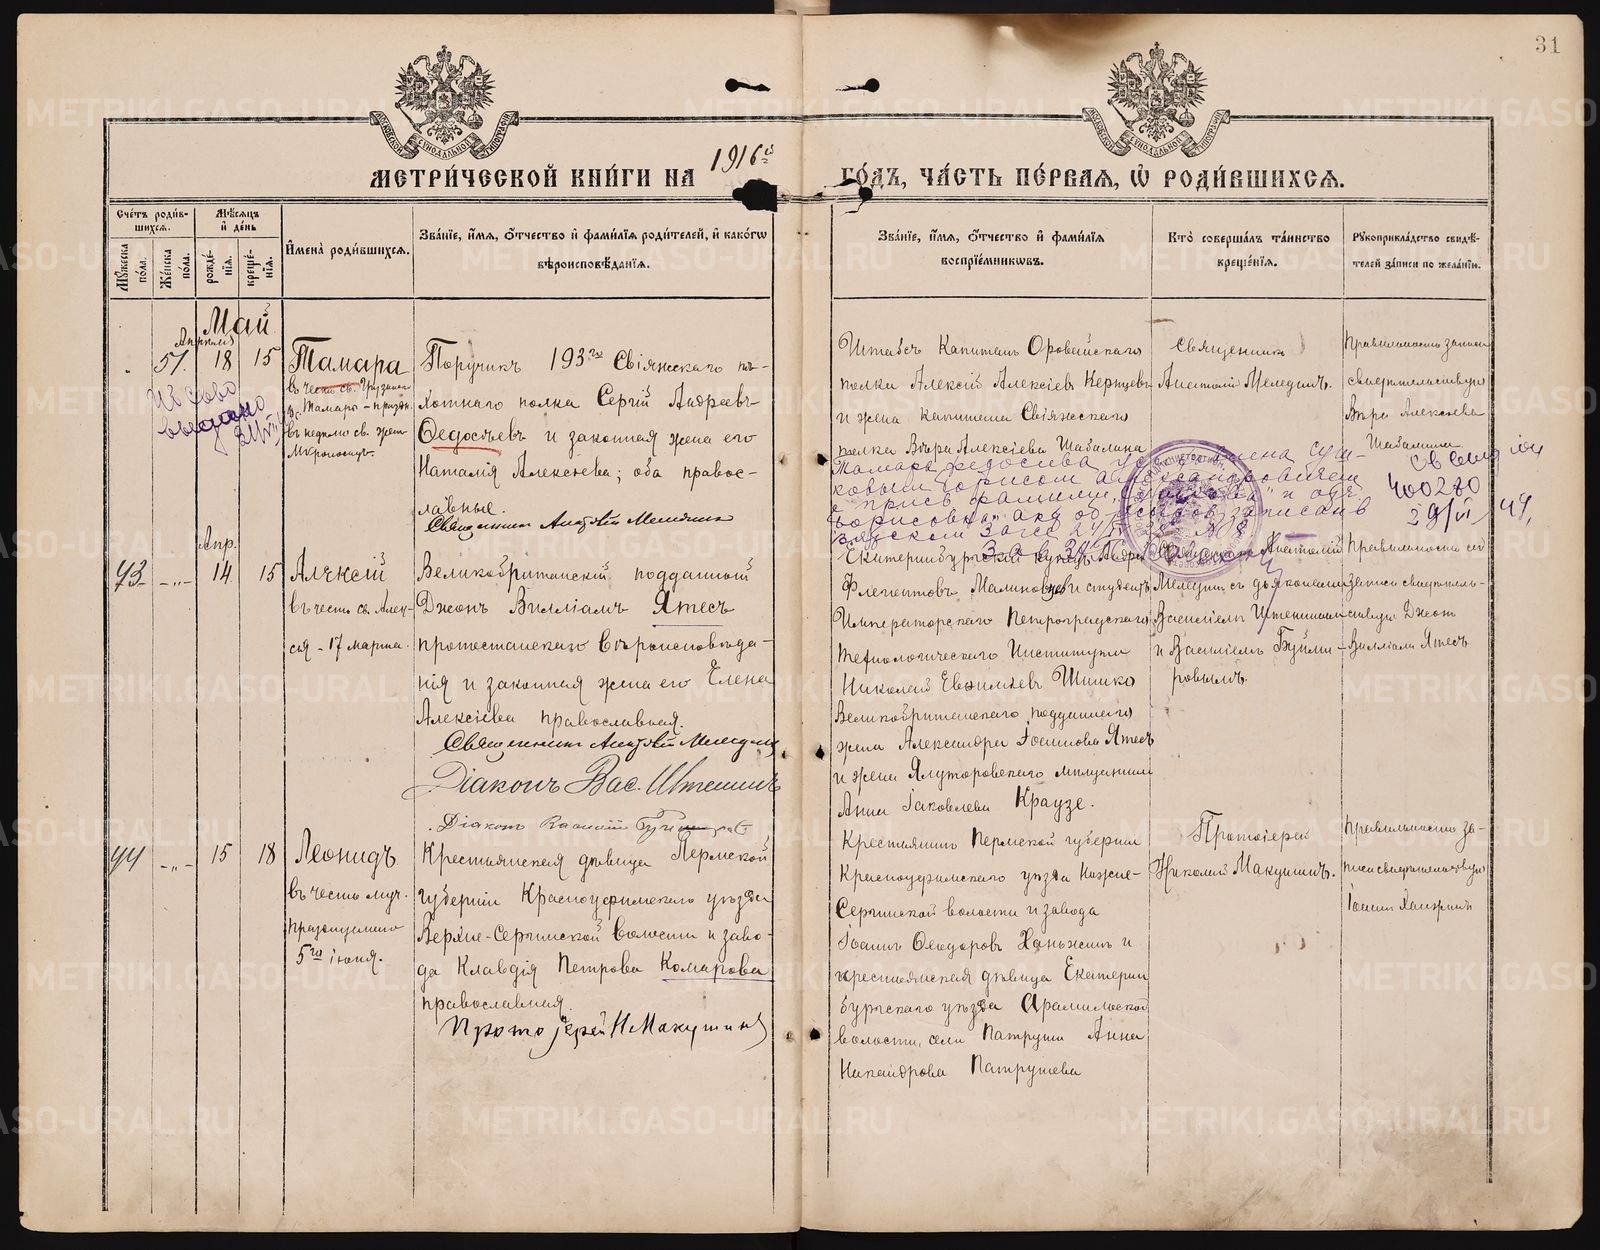 31
МЕТРИ́ЧЕСКОЙ КНИ́ГИ НА 1916й ГО́ДЪ, ЧА́СТЬ ПЕ́РВАѦ, Ѡ҆ РОДИ́ВШИХСѦ.
Сче́тъ роди́вшихсѧ.
Мѣ́сѧцъ и҆ де́нь
Мꙋ́жеска по́ла.
Же́нска по́ла.
рожде́нїѧ.
креще́нїѧ.
И҆мена̀ роди́вшихсѧ.
Зва́нїе, и҆́мѧ, ѻ҆́тчество и҆ фами́лїѧ роди́телей, и҆ како́гѡ
вѣроисповѣ́данїѧ.
Зва́нїе, и҆́мѧ, ѻ҆́тчество и҆ фами́лїѧ
воспрїе́мникѡвъ.
Кто̀ соверша́лъ та́инство
креще́нїѧ.
Рꙋкоприкла́дство свидѣ́-
телей за́писи по жела́нїю.
Май
Апрѣля
51. 18 15 Тамара
въ честь св. Грузинск.
Тамары – праздн.
въ недѣлю св. жен
Мѵроносицъ.
Поручикъ 193го Свіяжскаго пѣ-
хотнаго полка Сергій Андреевъ
Ѳедосѣевъ и законная жена его
Наталія Алексѣева; оба правос-
лавные.
Священникъ Анатолій Мелединъ
Штабсъ Капитанъ Оровайскаго
полка Алексій Алексіевъ Кернцевъ
и жена капитана Свіяжскаго
полка Вѣра Алексіева Шабалина
Священникъ
Анатолій Мелединъ.
Правильность записи
свидѣтельствую
Вѣра Алексѣева
Шабалина
400280
29/VI 44.
Апр.
43 – „ – 14 15 Алексій
въ честь св. Алек-
сія – 17 марта.
Великобританскій подданный
Джонъ Вилліамъ Ятесъ
протестанскаго вѣроисповѣда-
нія и законная жена его Елена
Алексіева православная.
Священникъ Анатолій Мелединъ
Діаконъ Вас. Иштенинъ
Діаконъ Василій
Екатеринбургскій купецъ
Флегонтовъ Малиновцевъ и студентъ
Императорскаго Петроградскаго
Технологическаго Института
Николай Евфиміевъ Шишко
Великобританскаго подданнаго
жена Александра Іосифова Ятесъ
и жена Ялуторовскаго мѣщанина
Анна Іаковлева Краузе.
Священникъ Анатолій
Мелединъ съ діаконами
Василіемъ Иштенинымъ
и Василіемъ Буйми-
ровымъ.
Правильность сей
записи свидѣтель-
ствую Джонъ
Вилліамъ Ятесъ
44 – „ – 15 18 Леонидъ
въ честь муч.
празднуемаго
5го іюня.
Крестьянская дѣвица Пермской
губерніи Красноуфимскаго уѣзда
Верхне-Сергинской волости и заво-
да Клавдія Петрова Комарова
православная.
Протоіерей Н Макушинъ
Крестьянинъ Пермской губерніи
Красноуфимскаго уѣзда Нижне-
Сергинской волости и завода
Іоаннъ Ѳеодоровъ Ханжинъ и
крестьянская дѣвица Екатерин
бургскаго уѣзда Арамильской
волости, села Патруши Анна
Никандрова Патрушева
Протоіерей
Николай Макушинъ.
Правильность за-
писи свидѣтельствую
Іоаннъ Ханжинъ
METRIKI.GASO-URAL.RU